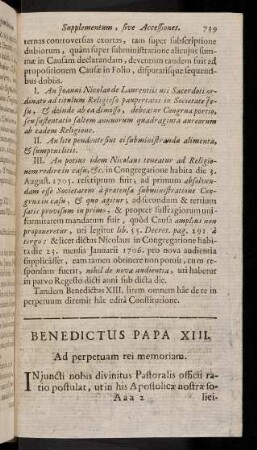 Supplementum, sive Accessiones. 739
ternas controversias exortas, tam super subscriptione
dubiorum, quam super subministratione alicujus sum-
mæ in Causam declarandam, deventum tandem fuit ad
propositionem Causæ in Folio, disputatisque sequenti-
bus dubiis.
I. An Joanni Nicolao de Laurentiis uti Sacerdoti or-
dinato ad titulum Religiosæ paupertatis in Societate Je-
su, & deinde ab ea dimisso, debeatur Congrua portio,
seu sustentatio saltem annuorum quadraginta aureorum
ab eadem Religione.
II. An lite pendente sint ei subministranda alimenta,
& sumptus litis.
III. An potius idem Nicolaus teneatur ad Religio-
nem redire in casu, &c. in Congregatione habita die 3.
August. 1705. rescriptum fuit; ad primum absolven-
dam esse Societatem à prætensa subministratione Con-
gruæ in casu, & quo agitur, ad secundum & tertium
satis provisum in primo, & propter suffragiorum uni-
formitatem mandatum fuit, quòd Causa amplius non
proponeretur, uti legitur lib. 55. Decret. pag. 291 à
tergo; & licet dictus Nicolaus in Congregatione habi-
ta die 23. mensis Januarii 1706. pro nova audientia
supplicâsset, eam tamen obtinere non potuit, cum re-
sponsum fuerit, nihil de nova audientia, uti habetur
in parvo Regesto dicti anni sub dicta die.
Tandem Benedictus XIII. litem omnem hâc de re in
perpetuum diremit hâc editâ Constitutione.
BENEDICTUS PAPA XIII.
Ad perpetuam rei memoriam.
INjuncti nobis divinitus Pastoralis officii ra-
tio postulat, ut in his Apostolicæ nostræ so-
Aaa 2 lici-